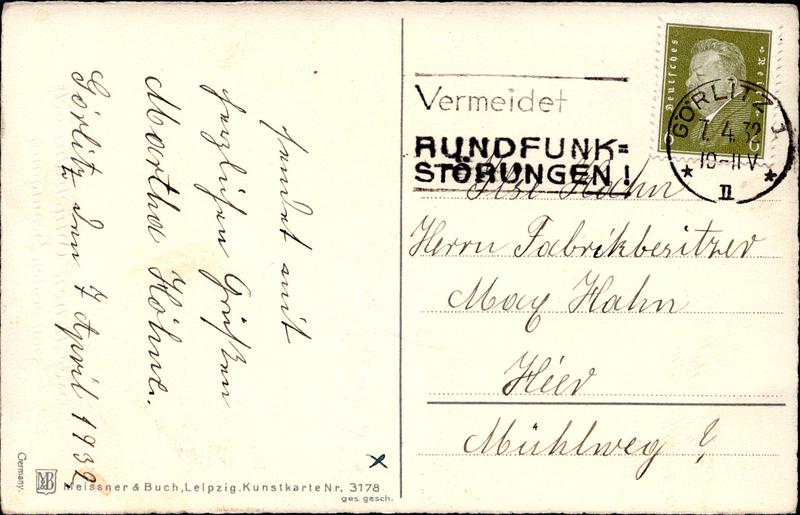 sendet mit
herzlichen Grüßen
Martha Höhne.
Görlitz den 7 April 1932.
Germany.
MB
Meissner & Buch, Leipzig, Kunstkarte Nr. 3178
ges. gesch.
Vermeidet
RUNDFUNK=
STÖRUNGEN!
Deutsches Reich
GÖRLITZ 1
7.4.32
10-11V
* II *
Hahn
Herrn Fabrikbesitzer
Max Hahn
Hier
Mühlweg